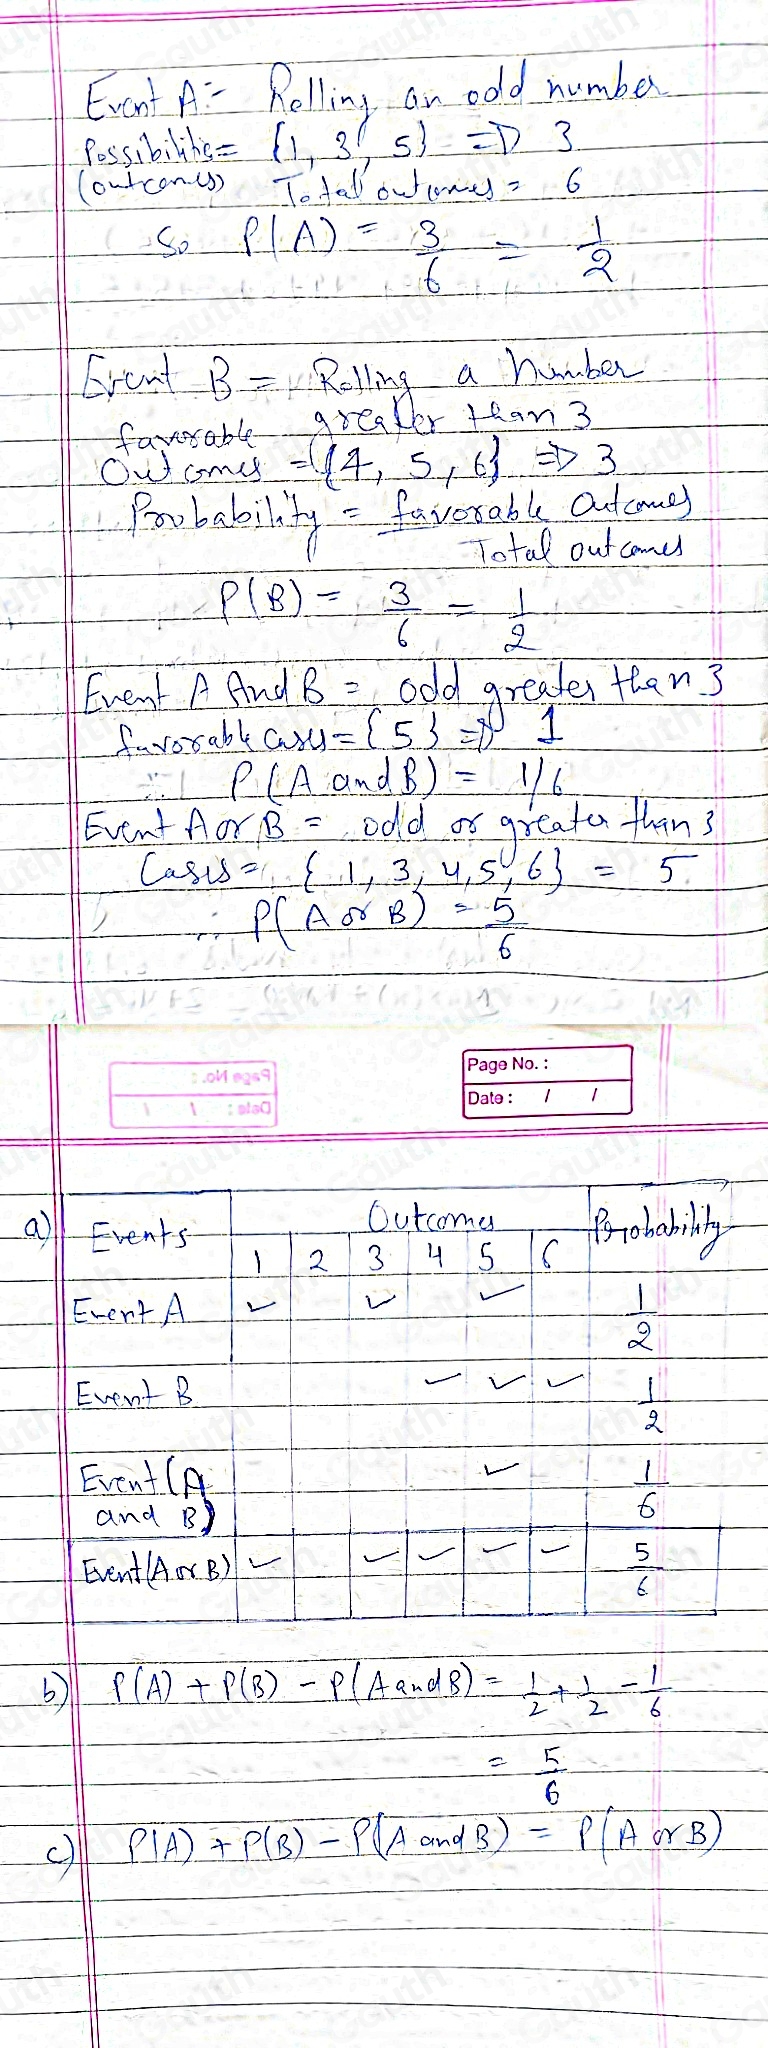 Event A:- Rolling an odd number
Possibilities = {1, 3, 5} => 3
(outcomes) Total outcomes = 6
So P(A) = 3/6 = 1/2
Event B = Rolling a number
greater than 3
favorable
Outcomes = {4, 5, 6} => 3
Probability = favorable Outcomes
Total outcomes
P(B) = 3/6 = 1/2
Event A And B = odd greater than 3
favorable cases = {5} => 1
P(A and B) = 1/6
Event A or B = odd or greater than 3
Cases = { 1, 3, 4, 5, 6} = 5
∴ P(A or B) = 5/6
Page No. :
Date : / /
a) Events Outcomes Probability
1 2 3 4 5 6
Event A ✓ ✓ ✓ 1/2
Event B ✓ ✓ ✓ 1/2
Event (A and B) ✓ 1/6
Event (A or B) ✓ ✓ ✓ ✓ ✓ 5/6
b) P(A) + P(B) - P(A and B) = 1/2 + 1/2 - 1/6
= 5/6
c) P(A) + P(B) - P(A and B) = P(A or B)